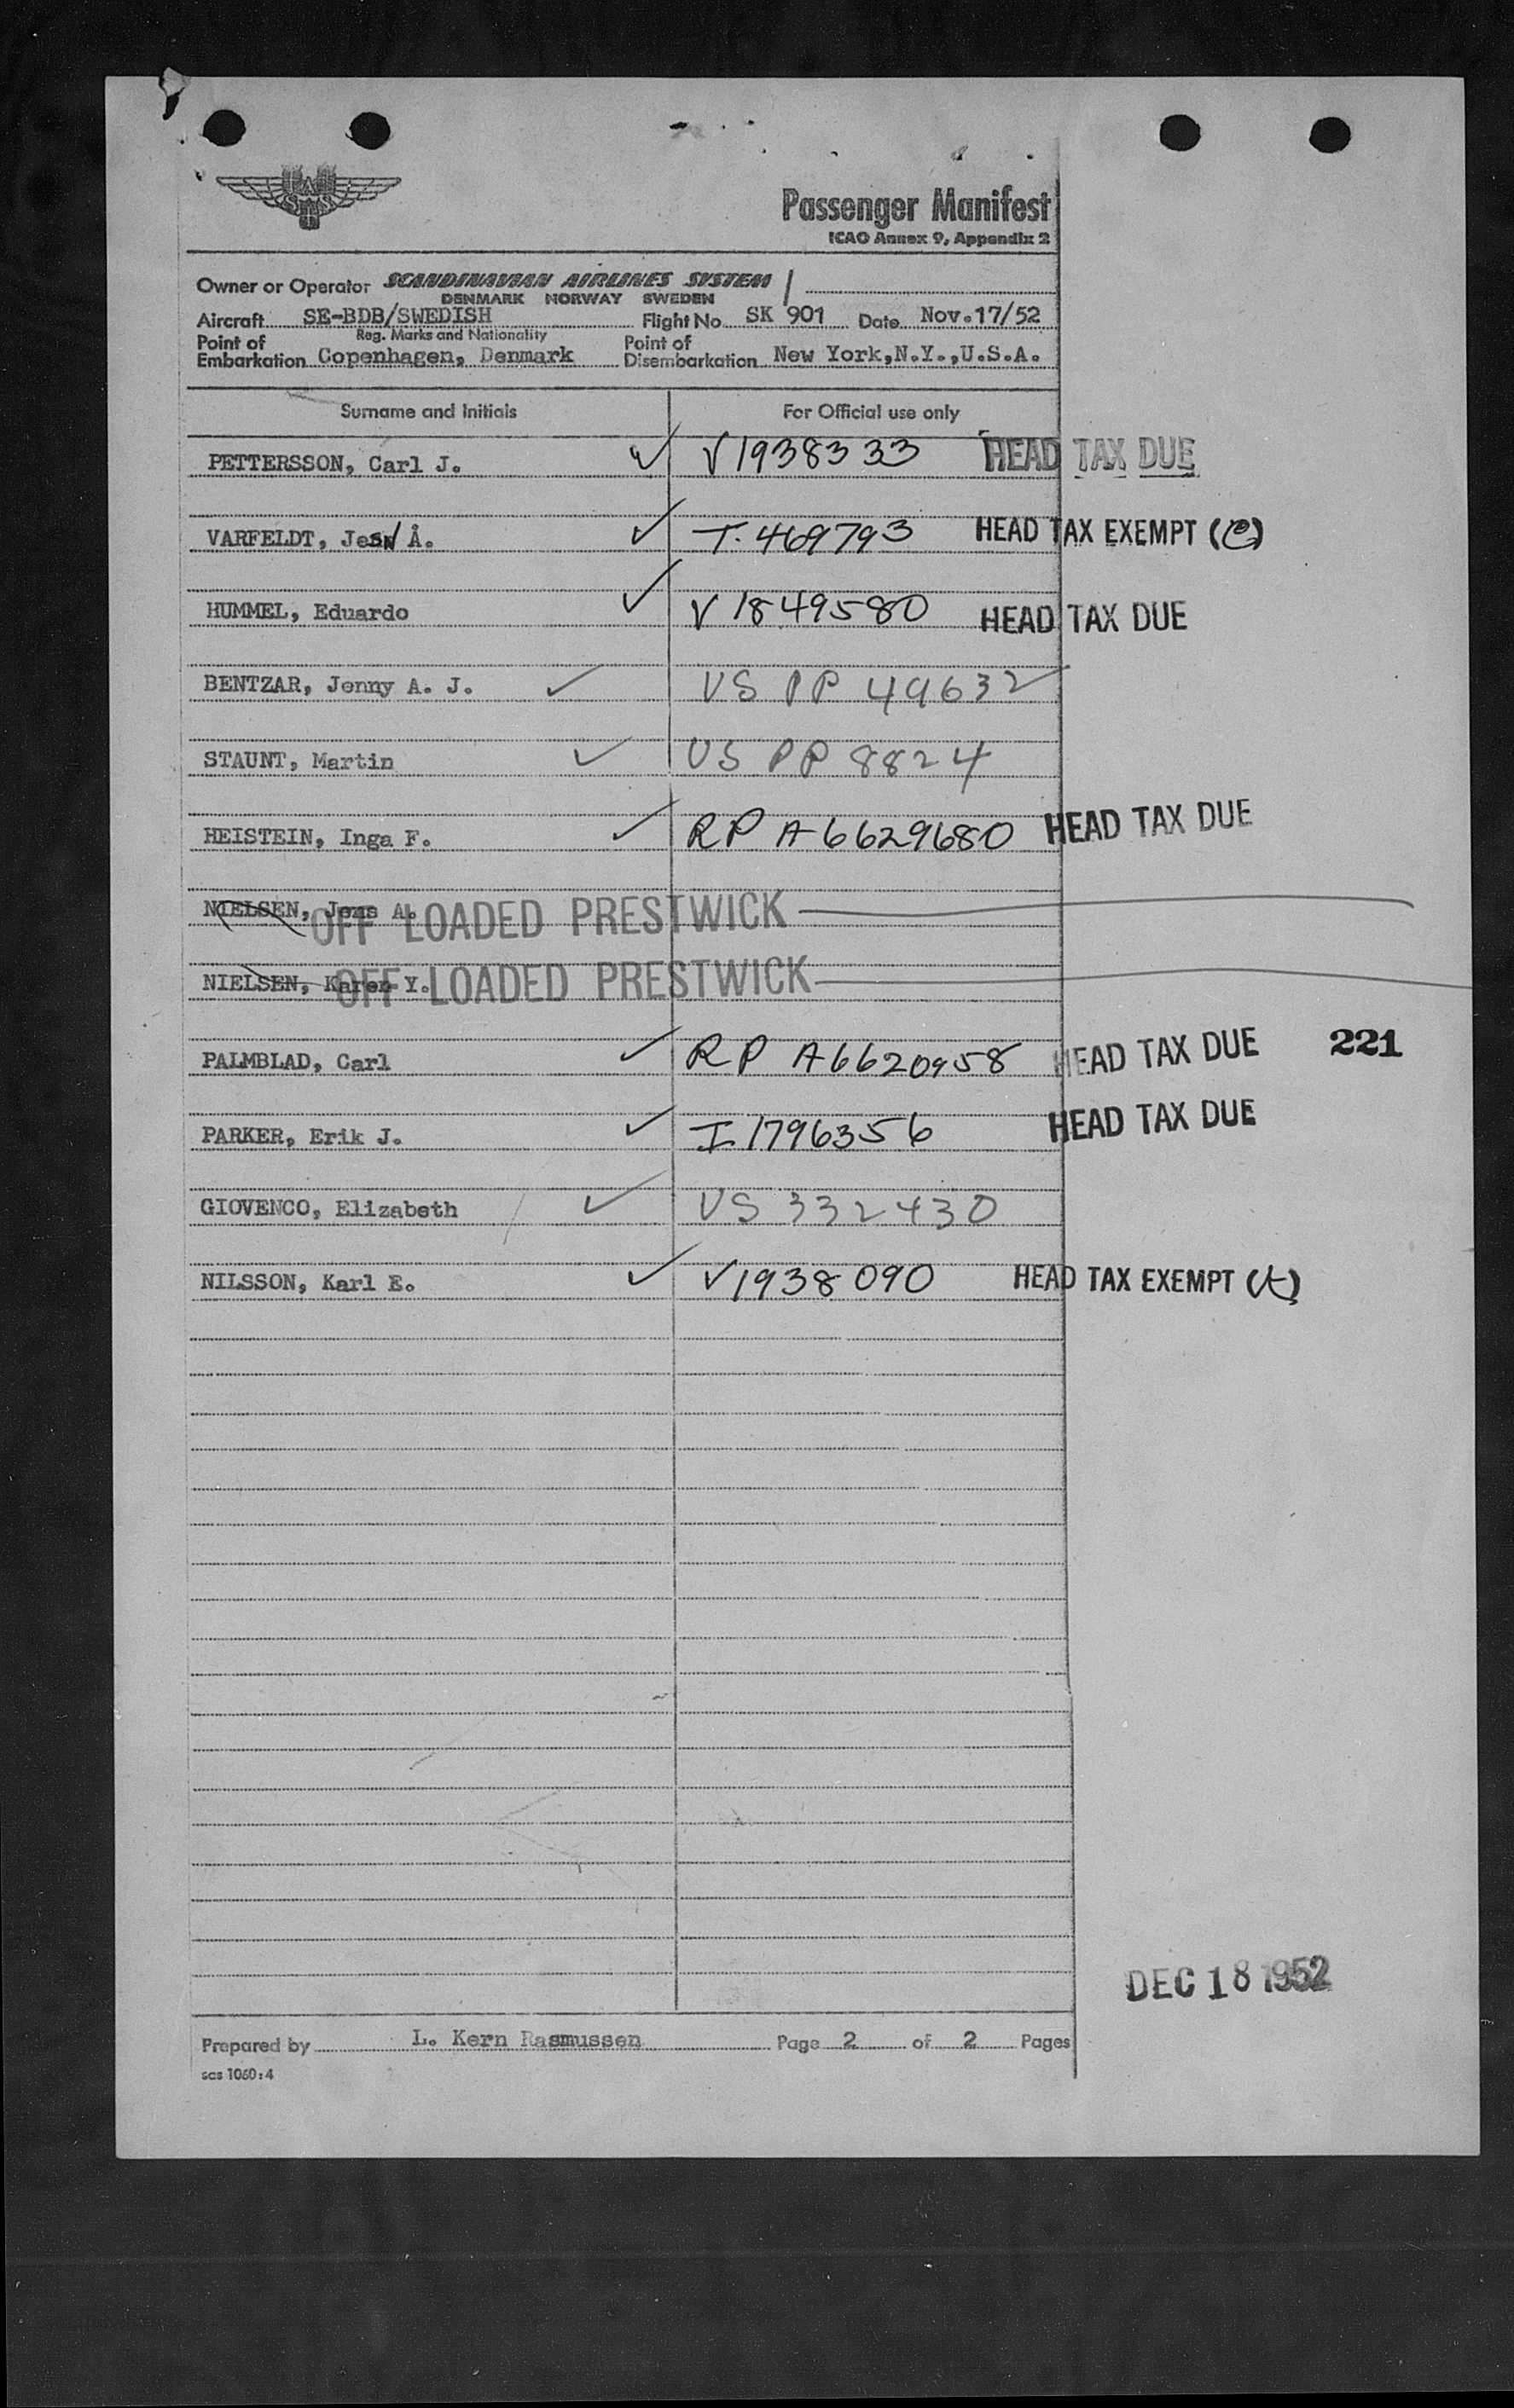 SAS
Passenger Manifest
ICAO Annex 9, Appendix 2
Owner or Operator SCANDINAVIAN AIRLINES SYSTEM
DENMARK NORWAY SWEDEN
Aircraft SE-BDB/SWEDISH Flight No. SK 901 Date Nov.17/52
Reg. Marks and Nationality
Point of Embarkation Copenhagen, Denmark Point of Disembarkation New York,N.Y.,U.S.A.
Surname and Initials For Official use only
PETTERSSON, Carl J. V 1938333 HEAD TAX DUE
VARFELDT, Å. T-469793 HEAD TAX EXEMPT (e)
HUMMEL, Eduardo V 1849580 HEAD TAX DUE
BENTZAR, Jenny A. J. US PP 49632
STAUNT, Martin US PP 8824
HEISTEIN, Inga F. RP A6629680 HEAD TAX DUE
NIELSEN, Jens A. OFF LOADED PRESTWICK
NIELSEN, Karen Y. OFF LOADED PRESTWICK
PALMBLAD, Carl RP A6620958 HEAD TAX DUE 221
PARKER, Erik J. I-1796356 HEAD TAX DUE
GIOVENCO, Elizabeth US 332430
NILSSON, Karl E. V 1938090 HEAD TAX EXEMPT (t)
DEC 18 1952
Prepared by L. Kern Rasmussen Page 2 of 2 Pages
scs 1060:4